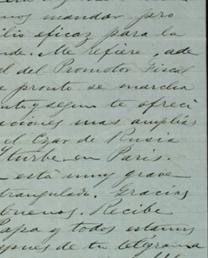 mos mandar, pro
ilio eficaz para la
nde. Me refiere, ade
l del Promotor Fiscal
e pronto se marcha
nto y segun te ofreci
aciones mas amplias
el Czar de Rusia
sturbe en Paris.
está muy grave
trangulada. Gracias
tenemos. Recibe
Papa y todos estamos
espues de tu telegrama